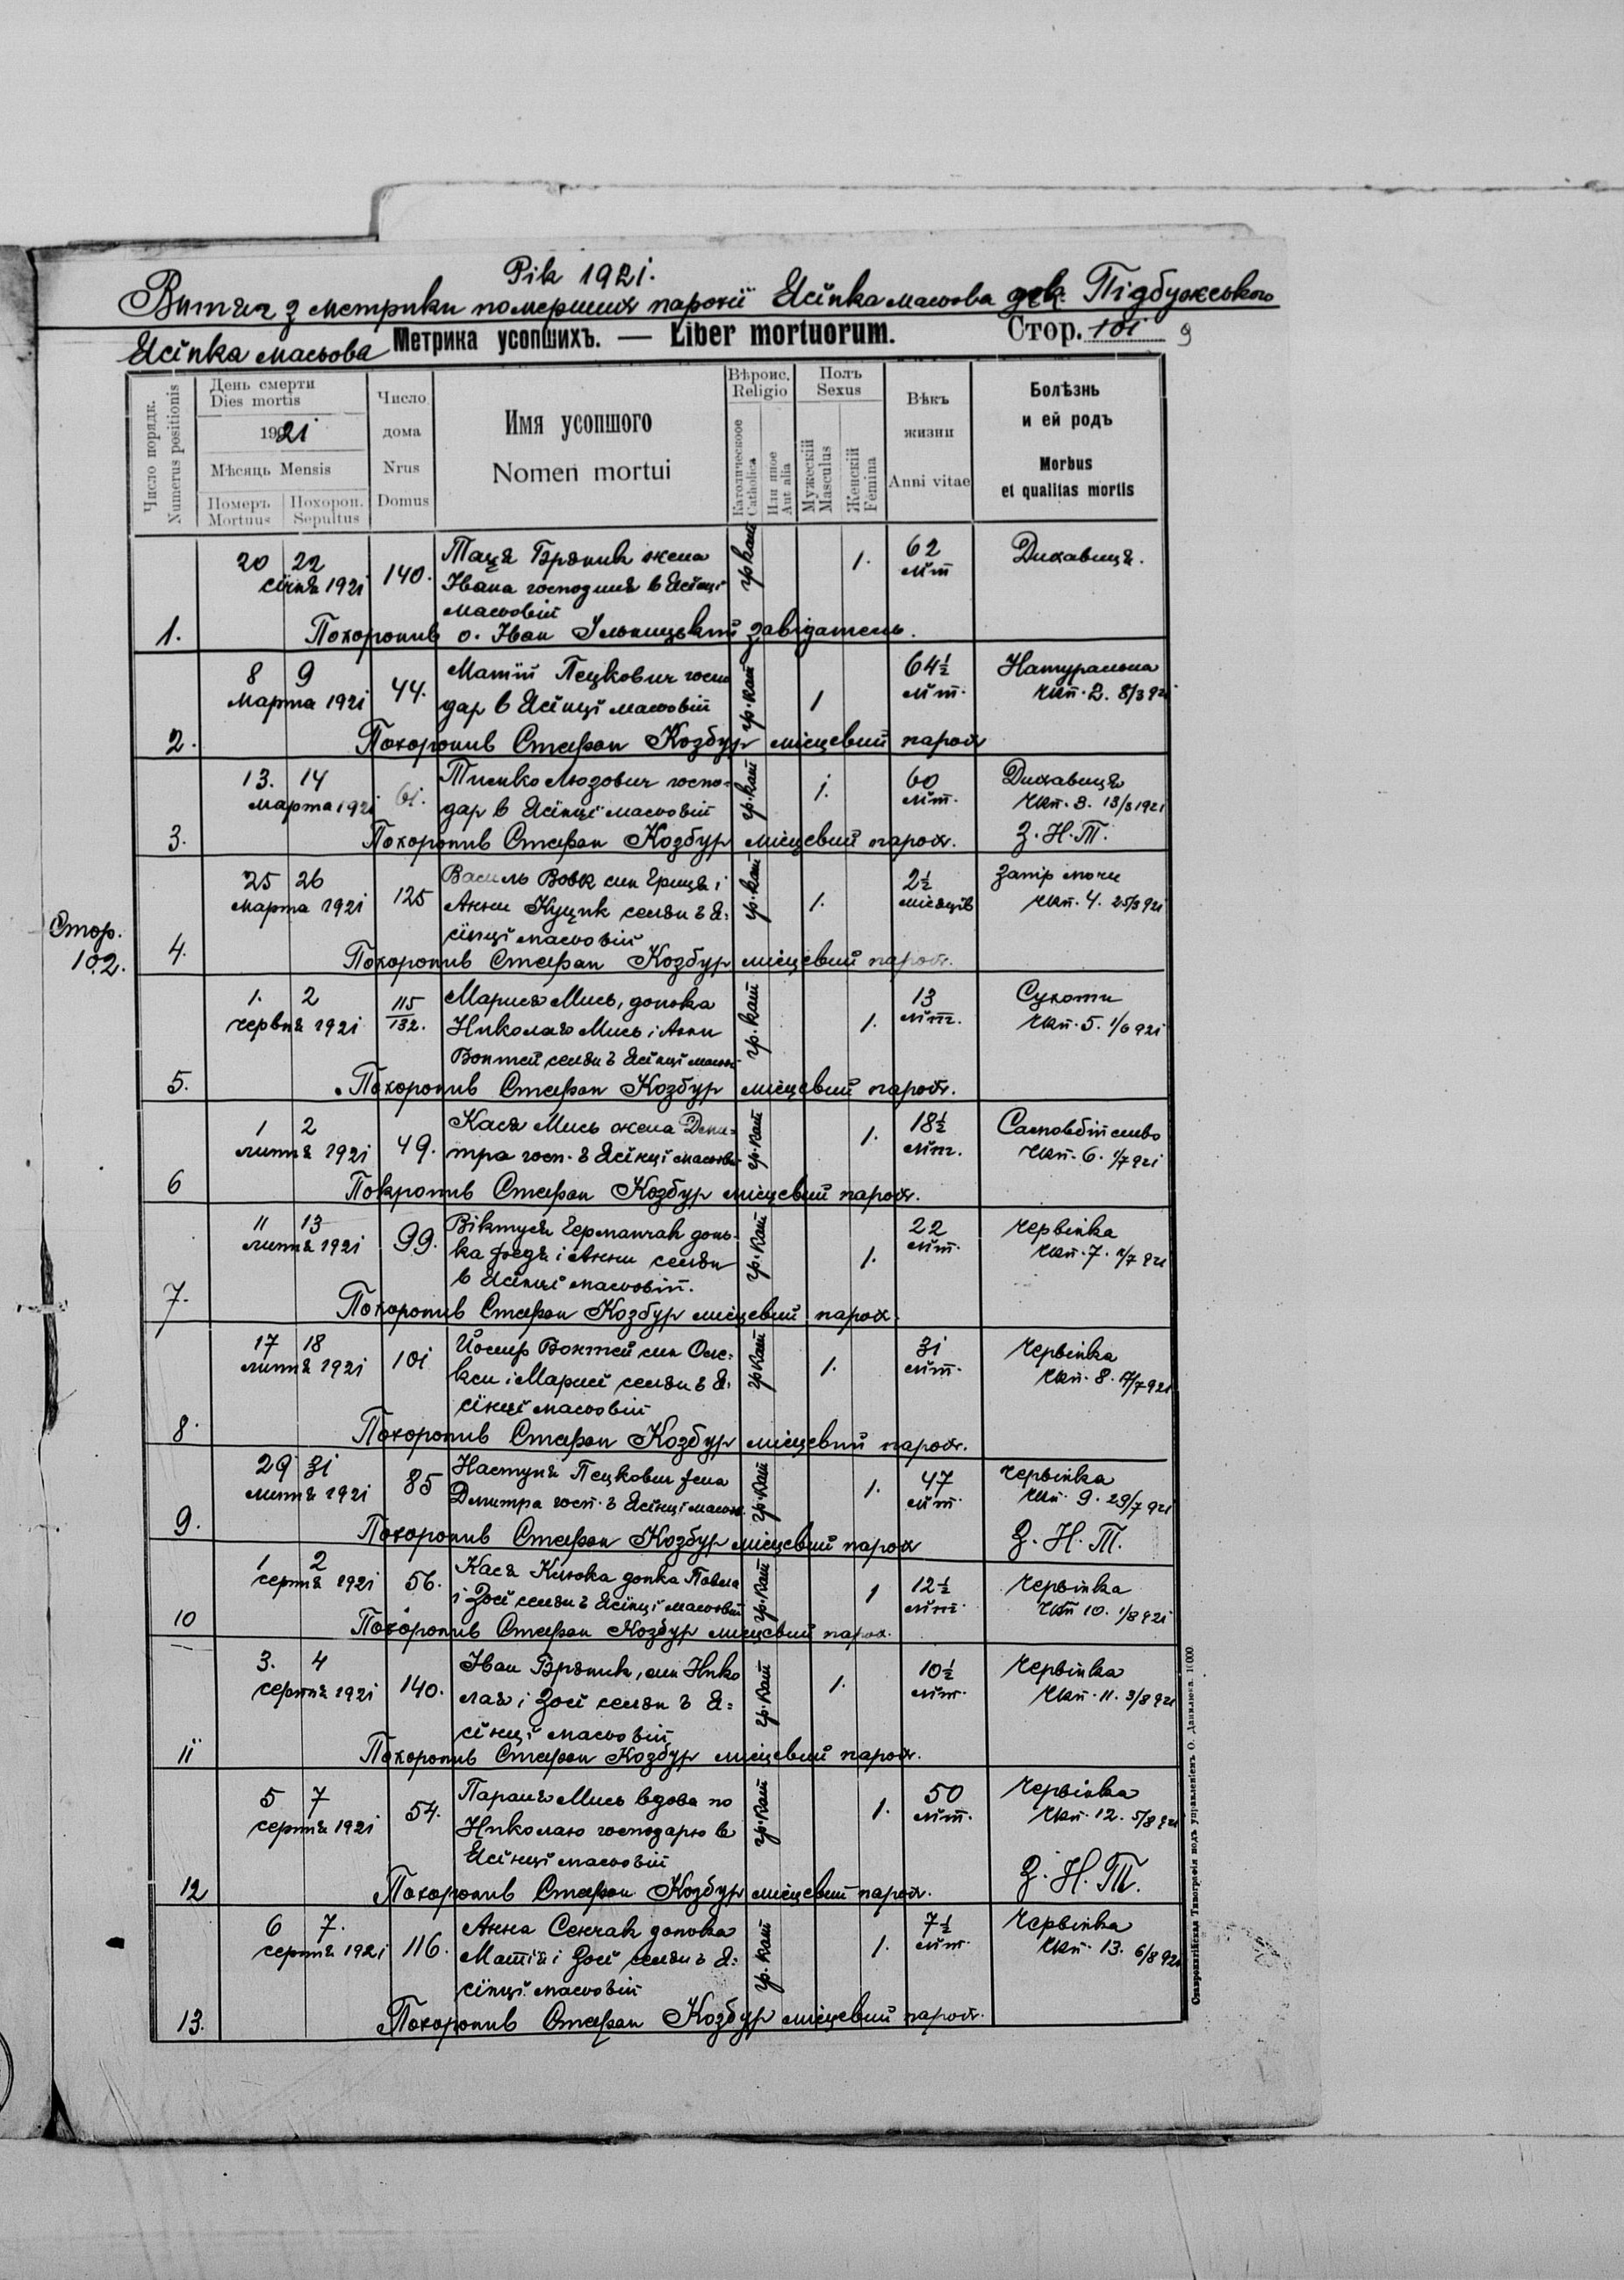 Рік 1921.
Витяг з метрики померших парохії Ясінка масьова дек. Підбужського
Ясінка масьова Метрика усопшихъ. — Liber mortuorum. Стор. 101 9
Число порядк. Numerus positionis
День смерти Dies mortis
1921
Мѣсяць Mensis
Померъ Mortuus
Похорон. Sepultus
Число дома Nrus Domus
Имя усопшого Nomen mortui
Вѣроис. Religio
Католическое Catholica
Или иное Aut alia
Полъ Sexus
Мужескій Masculus
Женскій Femina
Вѣкъ жизни Anni vitae
Болѣзнь и ей родъ Morbus et qualitas mortis
20 22 140. Таця Бряник жена гр кат 1. 62 Дихавиця.
січня 1921 Івана господиня в Ясінці літ
масьовій
1. Похоронив о. Іван Ільницький завідатель.
8 9 44. Матій Пецкович госпо гр. кат 1 64½ Натуральна
марта 1921 дар в Ясінці масьовій літ. чкп. 2. 8/3 921
2. Похоронив Стефан Козбур місцевий парох
13. 14 61. Тимко Людович госпо- гр. кат 1. 60 Дихавиця
марта 1921 дар в Ясінці масьовій літ. чкп. 3. 13/3 1921
3. Похоронив Стефан Козбур місцевий парох. З. Н. Т.
25 26 125 Василь Вовк син Гриця і гр. кат 1. 2½ Запір мочи
марта 1921 Анни Куцик селян в Я- місяців чкп. 4. 25/3 921
сінці масьовій
Стор. 102.
4. Похоронив Стефан Козбур місцевий парох.
1. 2 115/132. Мария Мись, донька гр. кат 1. 13 Сухоти
червня 1921 Николая Мись і Анни літ. чкп. 5. 1/6 921
Вонтей селян в Ясінці масьові
5. Похоронив Стефан Козбур місцевий парох.
1 2 49. Кася Мись жена Дми- гр. кат 1. 18½ Самовбійство
липня 1921 тра госп. в Ясінці масьові літ. чкп. 6. 1/7 921
6 Покронив Стефан Козбур місцевий парох.
11 13 99. Віктуся Германчак донь- гр. кат 1. 22 Червінка
липня 1921 ка Федя і Анни селян літ. чкп. 7. 11/7 921
в Ясінці масьовій.
7. Похоронив Стефан Козбур місцевий парох.
17 18 101 Йосиф Вонтей син Оле- гр кат 1. 31 Червінка
липня 1921 кси і Мариї селян в Я- літ. чкп. 8. 17/7 921
сінці масьовій
8. Похоронив Стефан Козбур місцевий парох.
29 31 85 Настуня Пецкович жена гр. кат 1. 47 Червінка
липня 1921 Дмитра госп. в Ясінці масьов. літ. чкп. 9. 29/7 921
9. Похоронив Стефан Козбур місцевий парох З. Н. Т.
1 2 56. Кася Клюка донка Павла гр. кат 1 12½ Червінка
серпня 1921 і Зосі селян в Ясінці масьовій літ. чкп 10. 1/8 921
10 Похоронив Стефан Козбур місцевий парох.
3. 4 140. Іван Бряник, син Нико гр. кат 1. 10½ Червінка
серпня 1921 лая і Зосі селян в Я- літ. чкп. 11. 3/8 921
сінці масьовій
11 Похоронив Стефан Козбур місцевий парох.
5 7 54. Параня Мись вдова по гр. кат 1. 50 Червінка
серпня 1921 Николаю господарю в літ. чкп. 12. 5/8 921
Ясінці масьовій
12 Похоронив Стефан Козбур місцевий парох. З. Н. Т.
6 7. 116. Анна Сенчак донька гр. кат 1. 7½ Червінка
серпня 1921 Матія і Зосі селян в Я- літ. чкп. 13. 6/8 921
сінці масьовій
13. Похоронив Стефан Козбур місцевий парох.
Ставропигійская Типографія подъ управленіемъ О. Данилюка. 1(000